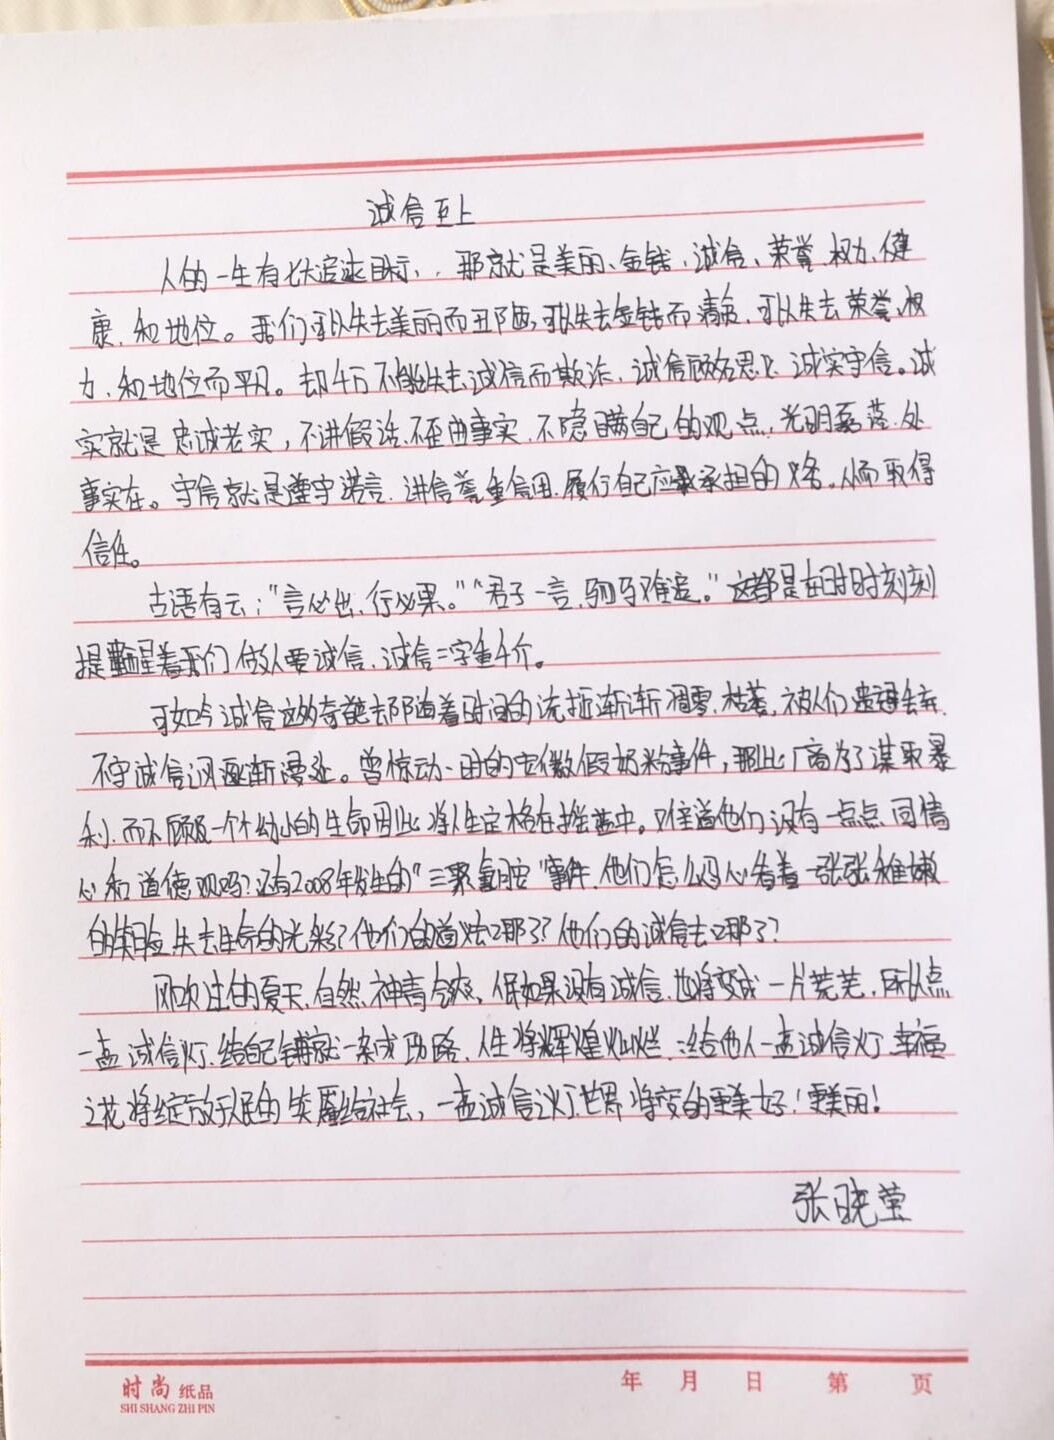 诚信至上
人的一生有七大追逐目标，，那就是美丽、金钱、诚信、荣誉、权力、健
康、和地位。我们可以失去美丽而丑陋，可以失去金钱而清贫，可以失去荣誉、权
力、和地位而平凡。却千万不能失去诚信而欺诈，诚信顾名思义，诚实守信。诚
实就是忠诚老实，不讲假话，不歪曲事实，不隐瞒自己的观点，光明磊落，处
事实在。守信就是遵守诺言，讲信誉重信用，履行自己应承担的义务，从而取得
信任。
古语有云："言必出，行必果。""君子一言，驷马难追。"这都是在时时刻刻
提醒着我们做人要诚信，诚信二字重千斤。
可如今诚信这的奇葩却随着时间的流逝渐渐凋零，枯萎，被人们遗忘丢弃，
不守诚信逐渐漫延。曾惊动一时的安徽假奶粉事件，那些厂商为了谋取暴
利，而不顾及一个个幼小的生命因此将人生定格在摇篮中。难道他们没有一点点同情
心和道德观吗？还有2008年发生的"三聚氰胺"事件，他们怎么忍心看着一张张稚嫩
的笑脸失去生命的光彩？他们的道德去哪了？他们的诚信去哪了？
风吹过的夏天，自然神清气爽，但如果没有诚信，也将变成一片荒芜，所以点
一盏诚信灯，给自己铺就一条成功路，人生将辉煌灿烂，给他人一盏诚信灯，幸福
之花将绽放于人民的笑靥给社会，一盏诚信灯，世界将变的更美好！更美丽！
张晓莹
时尚 纸品
SHI SHANG ZHI PIN
年 月 日 第 页